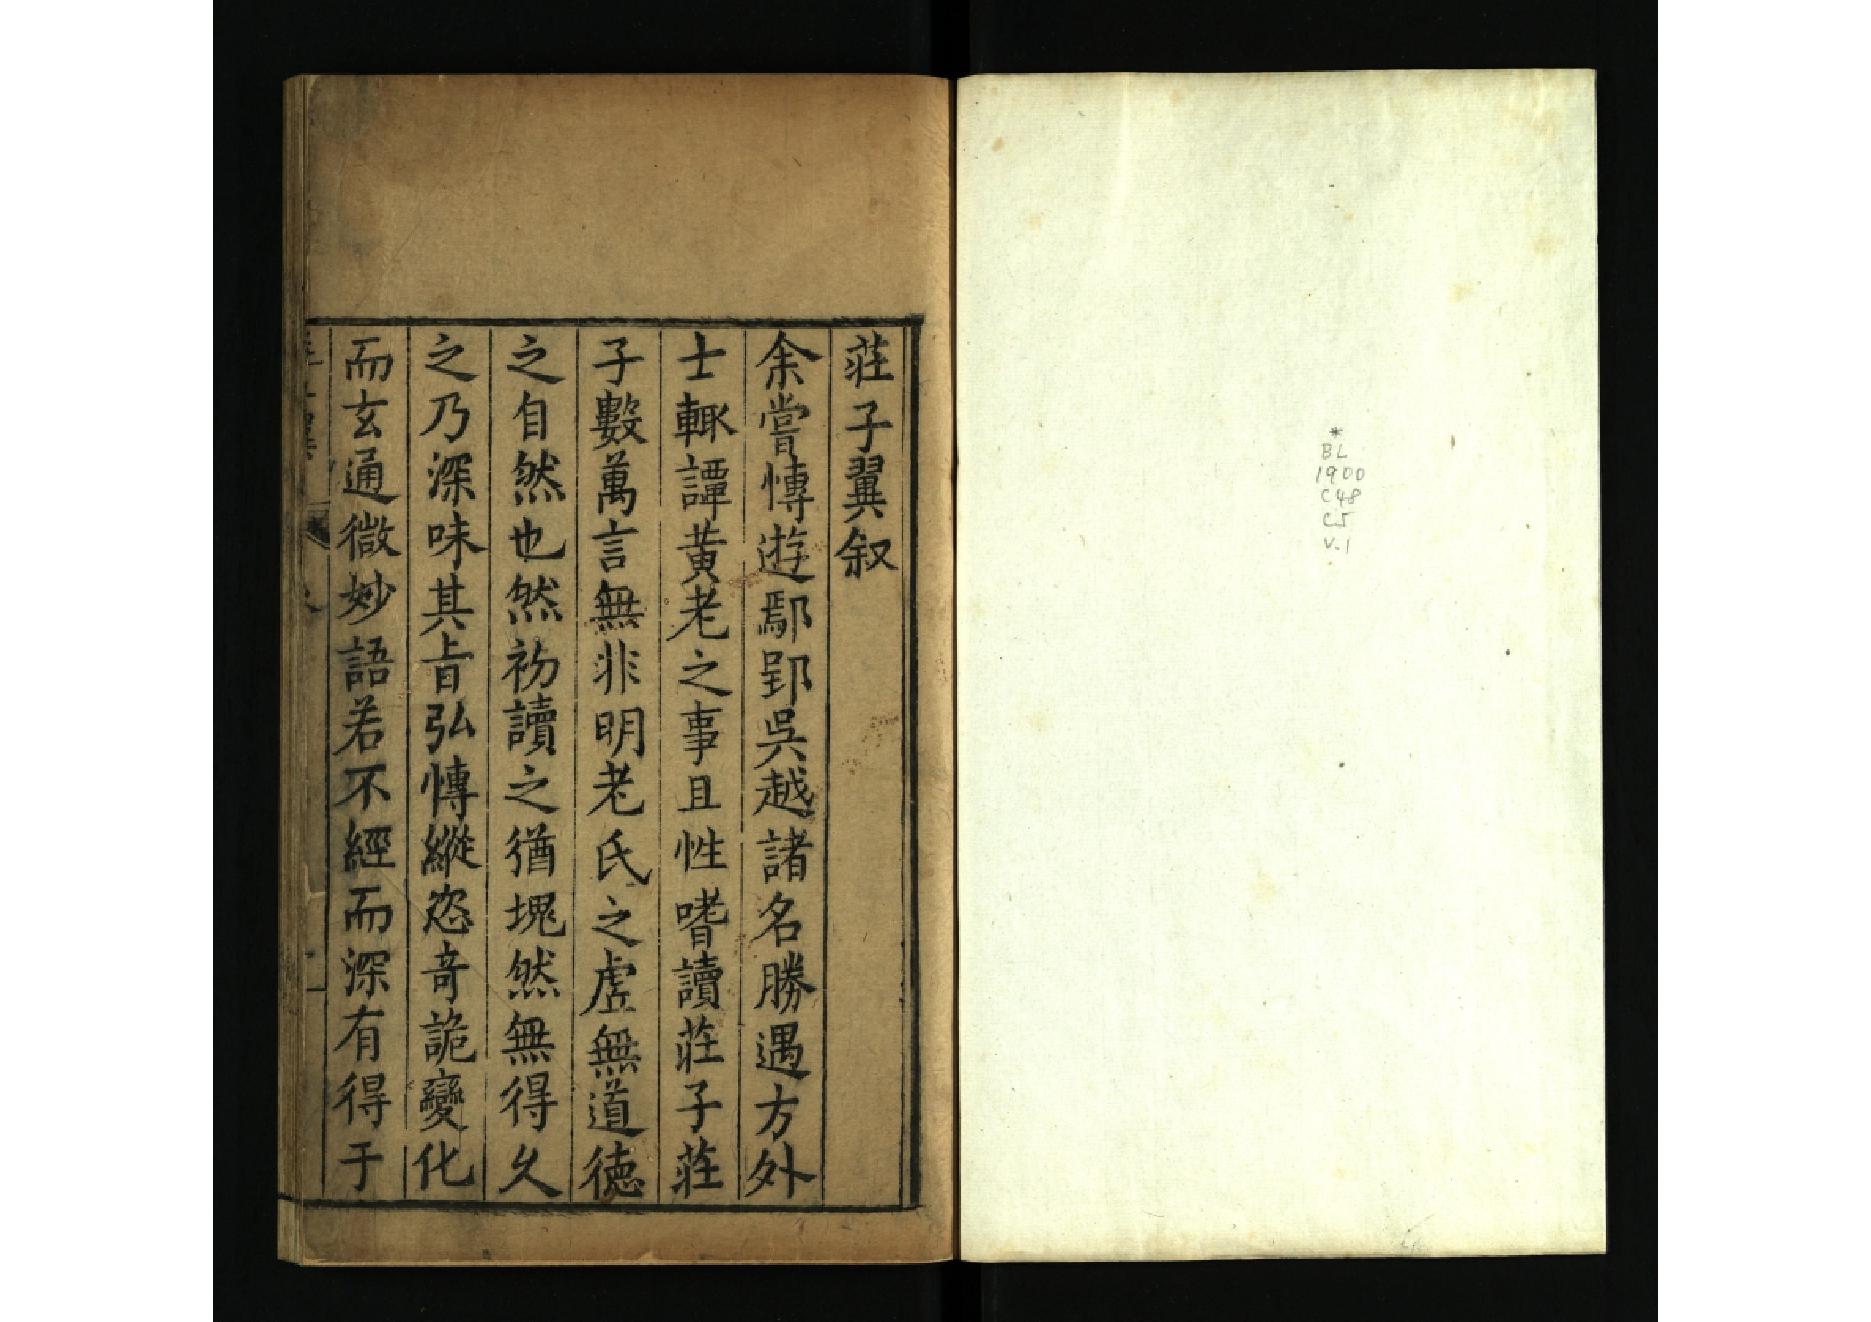 莊子翼叙
余嘗愽遊鄢郢吳越諸名勝遇方外
士輙譚黃老之事且性嗜讀莊子莊
子數萬言無非明老氏之虛無道德
之自然也然初讀之猶塊然無得久
之乃深味其旨弘愽縱恣奇詭變化
而玄通微妙語若不經而深有得于
*
BL
1900
C48
C5
V.1